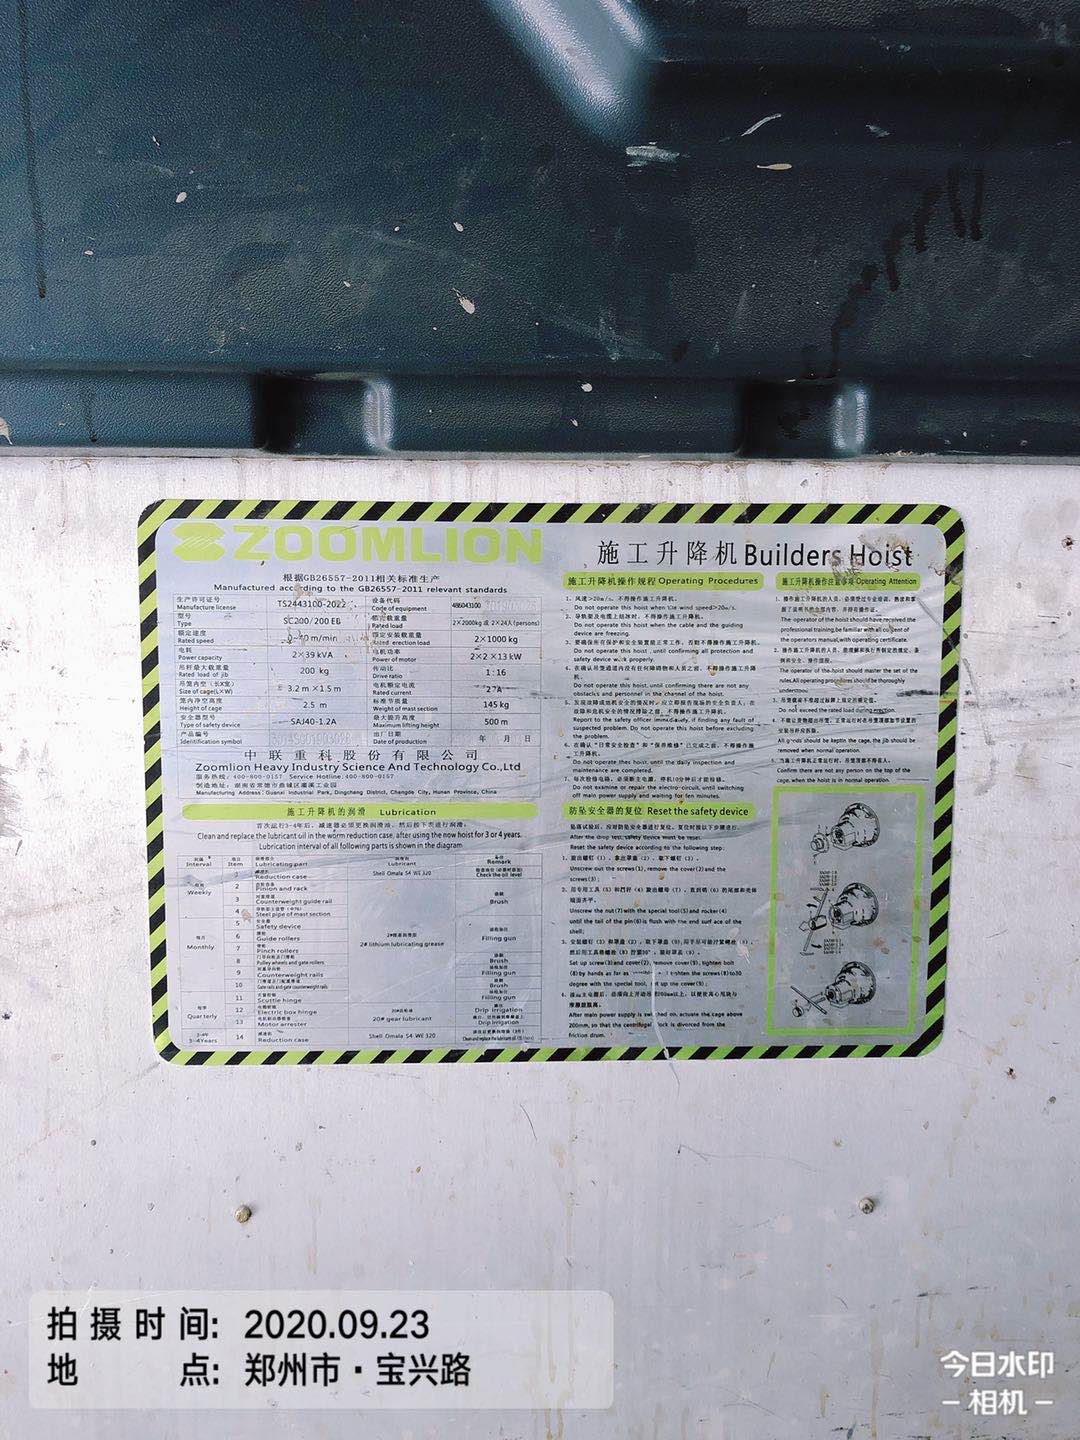 ZOOMLION
施工升降机 Builders Hoist
根据GB26557-2011相关标准生产
Manufactured according to the GB26557-2011 relevant standards
生产许可证号 Manufacture license TS2443100-2022 设备代码 Code of equipment
型号 Type SC200/200 EB 额定载重量 Rated load 2×2000kg 或 2×24人(persons)
额定速度 Rated speed 0~40 m/min 额定安装载重量 Rated erection load 2×1000 kg
电耗 Power capacity 2×39 kVA 电机功率 Power of motor 2×2×13 kW
吊杆最大载重量 Rated load of jib 200 kg 传动比 Drive ratio 1:16
吊笼内空(长X宽) Size of cage(L×W) 3.2 m ×1.5 m 电机额定电流 Rated current 27A
笼内净空高度 Height of cage 2.5 m 标准节质量 Weight of mast section 145 kg
安全器型号 Type of safety device SAJ40-1.2A 最大提升高度 Maximum lifting height 500 m
产品编号 Identification symbol 出厂日期 Date of production 年 月 日
中联重科股份有限公司
Zoomlion Heavy Industry Science And Technology Co.,Ltd
服务热线:400-800-0157 Service Hotline:400-800-0157
制造地址:湖南省常德市鼎城区灌溪工业园
Manufacturing Address: Guanxi Industrial Park, Dingcheng District, Changde City, Hunan Province, China
施工升降机的润滑 Lubrication
首次运行3-4年后,减速器必须更换润滑油,然后按下表进行润滑:
Clean and replace the lubricant oil in the worm reduction case, after using the new hoist for 3 or 4 years.
Lubrication interval of all following parts is shown in the diagram
间隔 Interval 项目 Item 润滑部位 Lubricating part 润滑剂 Lubricant 备注 Remark
每周 Weekly
1 减速机 Reduction case Shell Omala S4 WE 320 Check the oil level
2 齿轮齿条 Pinion and rack
3 对重滑道 Counterweight guide rail Brush
4 Steel pipe of mast section
每月 Monthly
5 安全器 Safety device
6 滚轮 Guide rollers Filling gun
7 Pinch rollers 2# lithium lubricating grease
8 Pulley wheels and gate rollers
9 Counterweight rails Brush
10 Gate rails and gate counterweight rails
每季 Quarterly
11 Scuttle hinge Filling gun
12 Electric box hinge 20# gear lubricant Drip irrigation
13 Motor arrester Drip irrigation
3-4年 3-4Years
14 减速机 Reduction case Shell Omala S4 WE 320
施工升降机操作规程 Operating Procedures
1. 风速>20m/s,不得操作施工升降机。
Do not operate this hoist when the wind speed>20m/s.
2. 导轨架及电缆上结冰时,不得操作施工升降机。
Do not operate this hoist when the cable and the guiding
device are freezing.
3. 要确保所有保护和安全装置能正常工作,否则不得操作施工升降机。
Do not operate this hoist, until confirming all protection and
safety device work properly.
4. 在确认吊笼通道内没有任何障碍物和人员之前,不得操作施工升降
机。
Do not operate this hoist, until confirming there are not any
obstacles and personnel in the channel of the hoist.
5. 发现故障或危机安全的情况时,应立即报告现场的安全负责人,在
故障和危机安全的情况排除之前,不得操作施工升降机。
Report to the safety officer immediately, if finding any fault of
suspected problem. Do not operate this hoist before excluding
the problem.
6. 在确认“日常安全检查”和“保养维修”已完成之前,不得操作施
工升降机。
Do not operate thes hoist, until the daily inspection and
maintenance are completed.
7. 每次检修电路,必须断主电源,停机10分钟后才能检修。
Do not examine or repair the electro-circuit, until switching
off main power supply and waiting for ten minutes.
防坠安全器的复位 Reset the safety device
坠落试验后,应对防坠安全器进行复位。复位时按以下步骤进行。
After the drop test, safety device must be reset.
Reset the safety device according to the following step:
1. 旋出螺钉(1),拿出罩盖(2),取下螺钉(3)。
Unscrew out the screws(1), remove the cover(2)and the
screws(3);
2. 用专用工具(5)和扳杆(4)旋出螺母(7),直到销(6)的尾部和壳体
端面齐平。
Unscrew the nut(7)with the special tool(5)and rocker(4)
until the tail of the pin(6)is flush with the end surf ace of the
shell;
3. 安装螺钉(3)和罩盖(2),取下罩盖(9),用手尽可能拧紧螺栓(8),
然后用工具将螺栓(8)拧紧30°,装好罩盖(9)。
Set up screw(3)and cover(2), remove cover(9), tighten bolt
(8)by hands as far as tighten the screws(8)to30
degree with the special tool, set up the cover(9);
4. 接通主电源后,必须向上开动吊笼200mm以上,以使离心甩块与
摩擦鼓脱离。
After main power supply is switched on, actuate the cage above
200mm, so that the centrifugal block is divorced from the
friction drum.
施工升降机操作注意事项 Operating Attention
1. 操作施工升降机的人员,必须受过专业培训,熟读和掌
握了说明书的全部内容,并持有操作证。
The operator of the hoist should have received the
professional training,be familiar with all content of
the operators manual,with operating certificate.
2. 操作施工升降机的人员,能理解和执行所制定的规定、条
例和安全、操作规程。
The operator of the hoist should master the set of
rules.All operating procedures should be thoroughly
understood.
3. 吊笼载荷不得超过额定载荷。
Do not exceed the rated load during erection.
All goods should be kept in the cage, the jib should be
removed when normal operation.
5. 当施工升降机正常运行时,吊笼顶部不得有人。
Confirm there are not any person on the top of the
cage,when the hoist is in normal operation.
拍摄时间: 2020.09.23
地 点: 郑州市·宝兴路
今日水印
-相机-